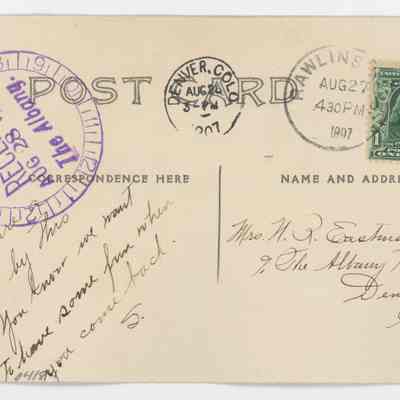 POST CARD
DENVER, COLO.
AUG 28
5-PM
1907
RAWLINS
AUG 27
430 PM
1907
1
REC
AUG 28
The Albany.
CORRESPONDENCE HERE
NAME AND ADDRE
by this
You know we want
To have some fun when
you come back.
S.
Mrs. N. R. Eastm
% The Albany
Den